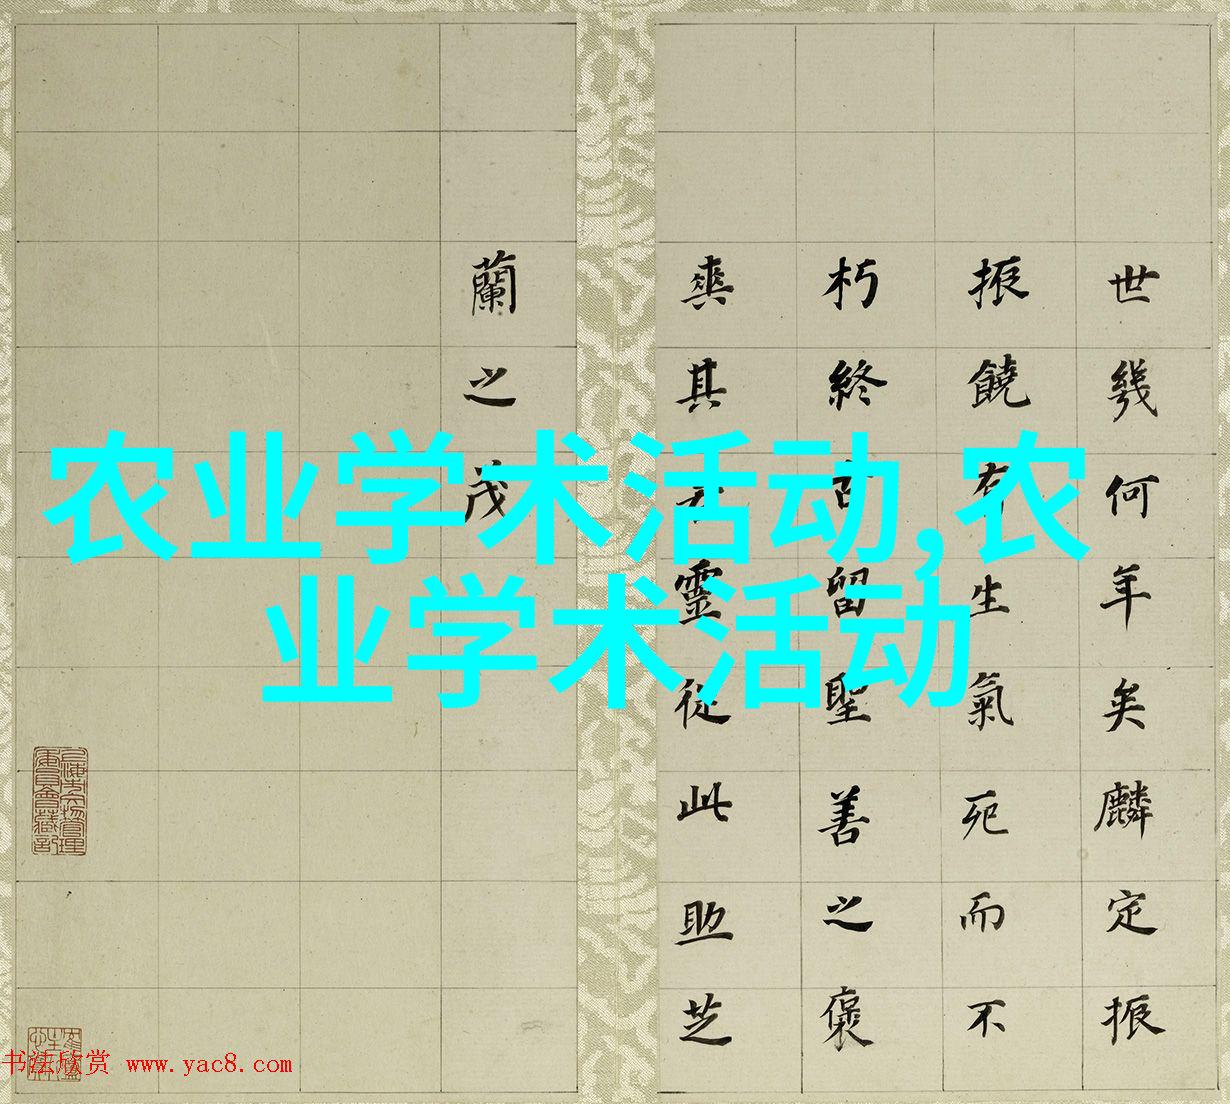 世幾何年矣麟定振
振饒有生氣死而不
朽終古留聖善之褒
爽其靈從此助芝
蘭之茂
农业学术活动,农
业学术活动
书法欣赏 www.yac8.com